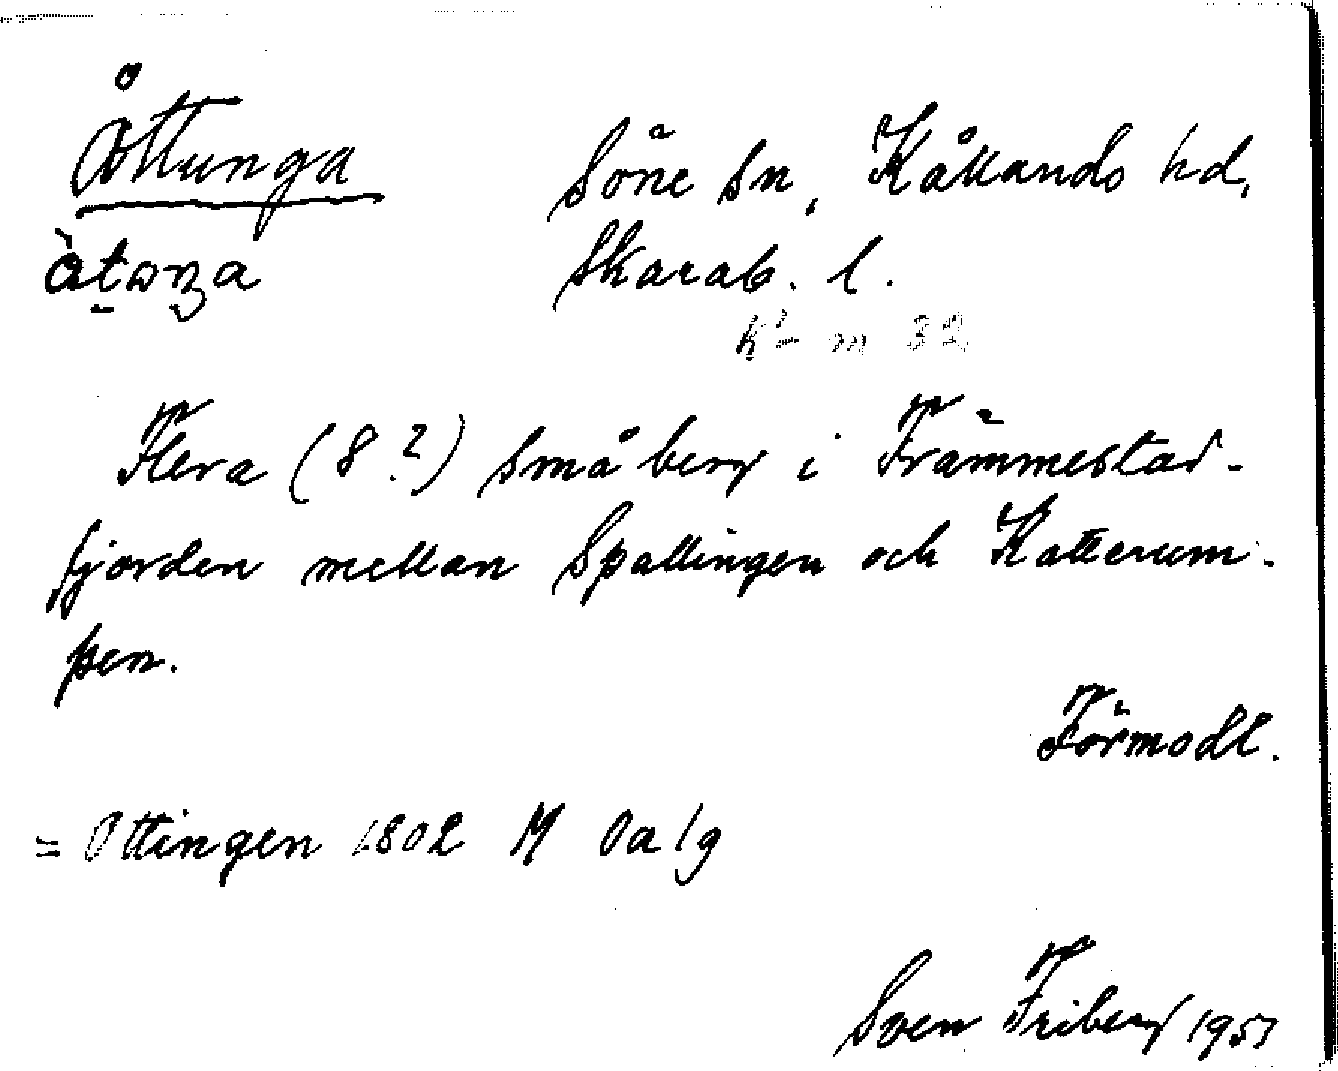 Åttunga
Söne sn, Kållands hd,
Skarab. l.
Flera (8?) små berg i Främmestad-
fjorden mellan Spallingen och Katterum-
pen.
Förmodl.
= Ottingen 1802 M Oa 19
Sven Friberg 1957